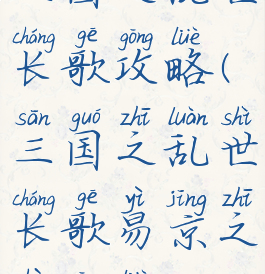 cháng gē gōng lüè
长歌攻略(
sān guó zhī luàn shì
三国之乱世
cháng gē yì jīng zhī
长歌易京之